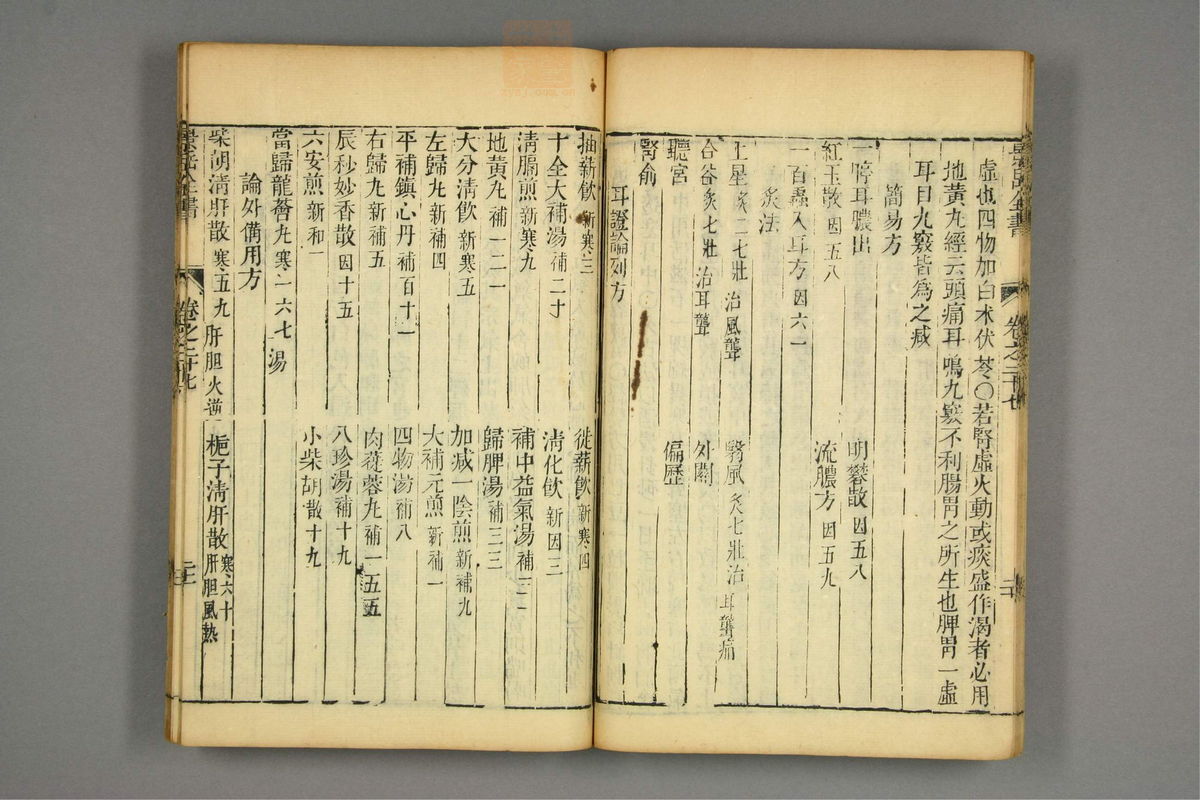 虛也四物加白术伏苓〇若腎虛火動或痰盛作渴者必用
地黃丸經云頭痛耳鳴九竅不利腸胃之所生也脾胃一虛
耳目九竅皆爲之
簡易方
一停耳膿出 明礬散因五八
紅玉散因五八 流膿方因五九
一百蟲入耳方因六一
灸法
上星灸二七壯治風聾 翳風灸七壯治耳聾痛
合谷灸七壯治耳聾 外關
聽宮 偏歷
腎俞
耳證論列方
抽薪飲新寒三 徙薪飲新寒四
十全大補湯補二十 清化飲新因三
清膈煎新寒九 補中益氣湯補三
地黃丸補一二一 歸脾湯補三三
大分清飲新寒五 加減一陰煎新補九
左歸丸新補四 大補元煎新補一
平補鎮心丹補百十二 四物湯補八
右歸丸新補五 肉蓯蓉丸補一五五
辰砂妙香散因十五 八珍湯補十九
六安煎新和一 小柴胡散十九
當歸龍薈丸寒一六七 湯
論外備用方
柴胡清肝散寒五九肝胆火逆 梔子清肝散寒六十肝胆風熱
卷之二十七
二二
卷之二十七